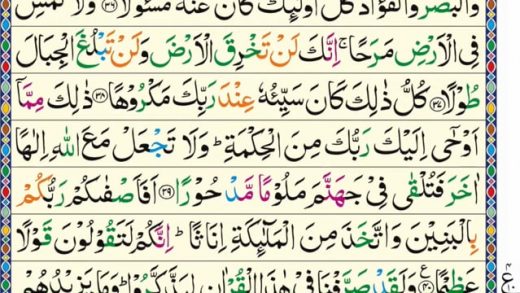 وَالۡبَصَرَ وَالۡفُؤَادَ كُلُّ اُولٰٓئِكَ كَانَ عَنۡهُ مَسۡـُٔوۡلًا ﴿۳۶﴾ وَلَا تَمۡشِ
فِى الۡاَرۡضِ مَرَحًا‌ ۚ اِنَّكَ لَنۡ تَخۡرِقَ الۡاَرۡضَ وَلَنۡ تَبۡلُغَ الۡجِبَالَ
طُوۡلًا ﴿۳۷﴾ كُلُّ ذٰلِكَ كَانَ سَيِّئُهٗ عِنۡدَ رَبِّكَ مَكۡرُوۡهًا ﴿۳۸﴾ ذٰلِكَ مِمَّاۤ
اَوۡحٰۤى اِلَيۡكَ رَبُّكَ مِنَ الۡحِكۡمَةِ‌ ؕ وَلَا تَجۡعَلۡ مَعَ اللّٰهِ اِلٰهًا
اٰخَرَ فَتُلۡقٰى فِىۡ جَهَنَّمَ مَلُوۡمًا مَّدۡحُوۡرًا ﴿۳۹﴾ اَفَاَصۡفٰٮكُمۡ رَبُّكُمۡ
بِالۡبَنِيۡنَ وَاتَّخَذَ مِنَ الۡمَلٰۤئِكَةِ اِنَاثًا‌ ؕ اِنَّكُمۡ لَتَقُوۡلُوۡنَ قَوۡلًا
عَظِيۡمًا ﴿۴۰﴾ وَلَقَدۡ صَرَّفۡنَا فِىۡ هٰذَا الۡقُرۡاٰنِ لِيَذَّكَّرُوۡا ؕ وَمَا يَزِيۡدُهُمۡ